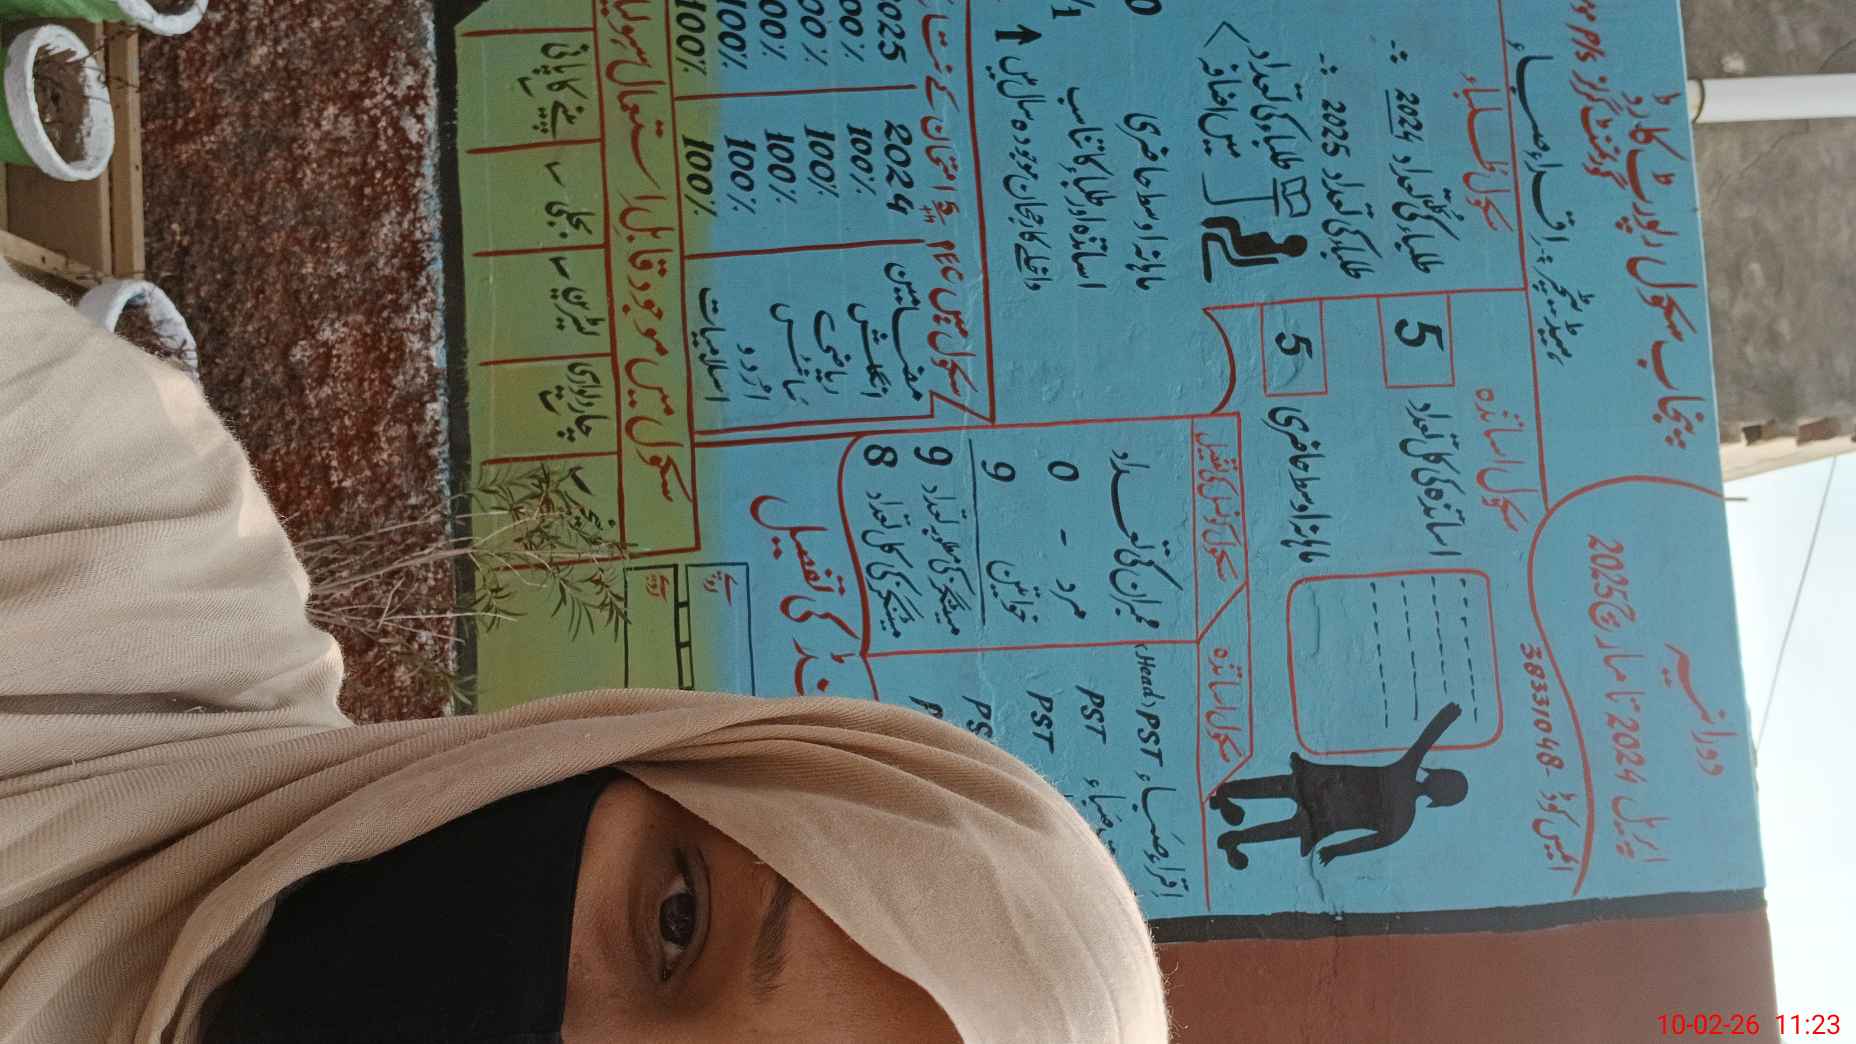 پنجاب سکول رپورٹ کارڈ
دورانیہ
اپریل 2024 تا مارچ 2025
گورنمنٹ گرلز
ہیڈ ٹیچر: اقراء صباء
ایمس کوڈ - 38331048
سکول طلباء
سکول اساتذہ
طلباء کی کُل تعداد 2024 :-
5
اساتذہ کی کل تعداد
طلباء کی تعداد 2025 :-
5
ماہانہ اوسط حاضری
طلباء کی تعداد
میں اضافہ
ماہانہ اوسط حاضری
اساتذہ اور طلباء کا تناسب
داخلے کا رجحان موجودہ سال میں ↑
سکول کونسل کی تفصیل
ممبران کی تعداد
0 - مرد
9 خواتین
9 میٹنگز کی مطلوبہ تعداد
8 میٹنگز کی کل تعداد
سکول اساتذہ
اقراء صباء PST (Head)
PST
PST
سکول میں PEC امتحان کے
مضامین 2024 2025
انگلش 100% 00%
ریاضی 100% 00%
سائنس 100% 00%
اُردو 100% 100%
اسلامیات 100% 100%
کی تفصیل
سکول میں موجود قابل استعمال سہولیات
پینے کا پانی
✓
بجلی
✓
لیٹرین
چاردیواری
✓
10-02-26 11:23